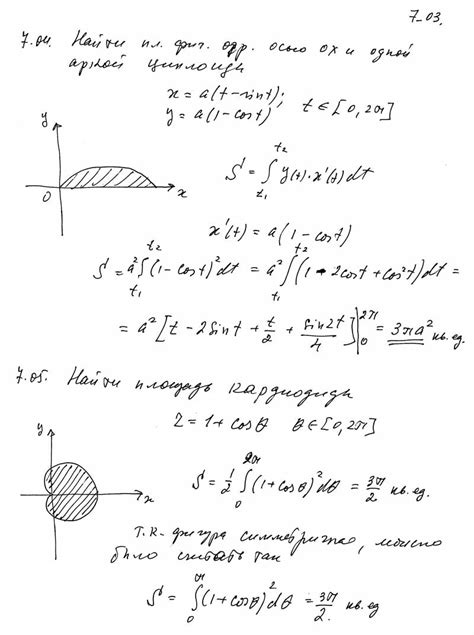 7-03.
7.04. Найти пл. фиг. огр. осью ох и одной
аркой циклоиды
x = a(t - sint);
y = a(1 - cost)   t ∈ [0, 2π]
y
0   x
S = ∫_{t₁}^{t₂} y(t)·x'(t)dt
x'(t) = a(1 - cost)
S = a² ∫_{t₁}^{t₂} (1 - cost)² dt = a² ∫_{t₁}^{t₂} (1 - 2cost + cos²t)dt =
= a² [t - 2sint + t/2 + sin2t/4] |₀^{2π} = 3πa² кв.ед.
7.05. Найти площадь кардиоиды
r = 1 + cosθ   θ ∈ [0, 2π]
y
x
S = 1/2 ∫₀^{2π} (1 + cosθ)² dθ = 3π/2 кв. ед.
т.к. фигура симметрична, можно
было считать так
S = ∫₀^{π} (1 + cosθ)² dθ = 3π/2. кв. ед